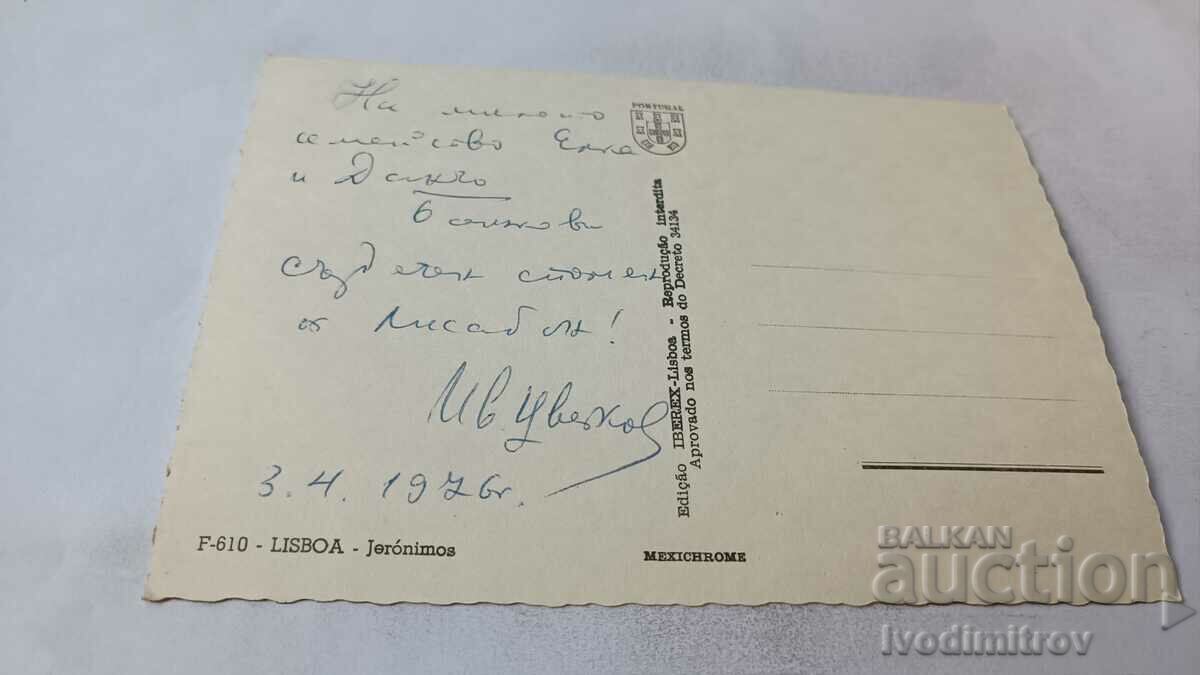 На милото
семейство Елка
и Данчо
сърдечен спомен
от Лисабон!
Ив. Цветков
3.4. 1976г.
F-610 - LISBOA - Jerónimos
PORTUGAL
Edição IBEREX-Lisboa - Reprodução interdita
Aprovado nos termos do Decreto 34134
MEXICHROME
BALKAN
auction
Ivodimitrov